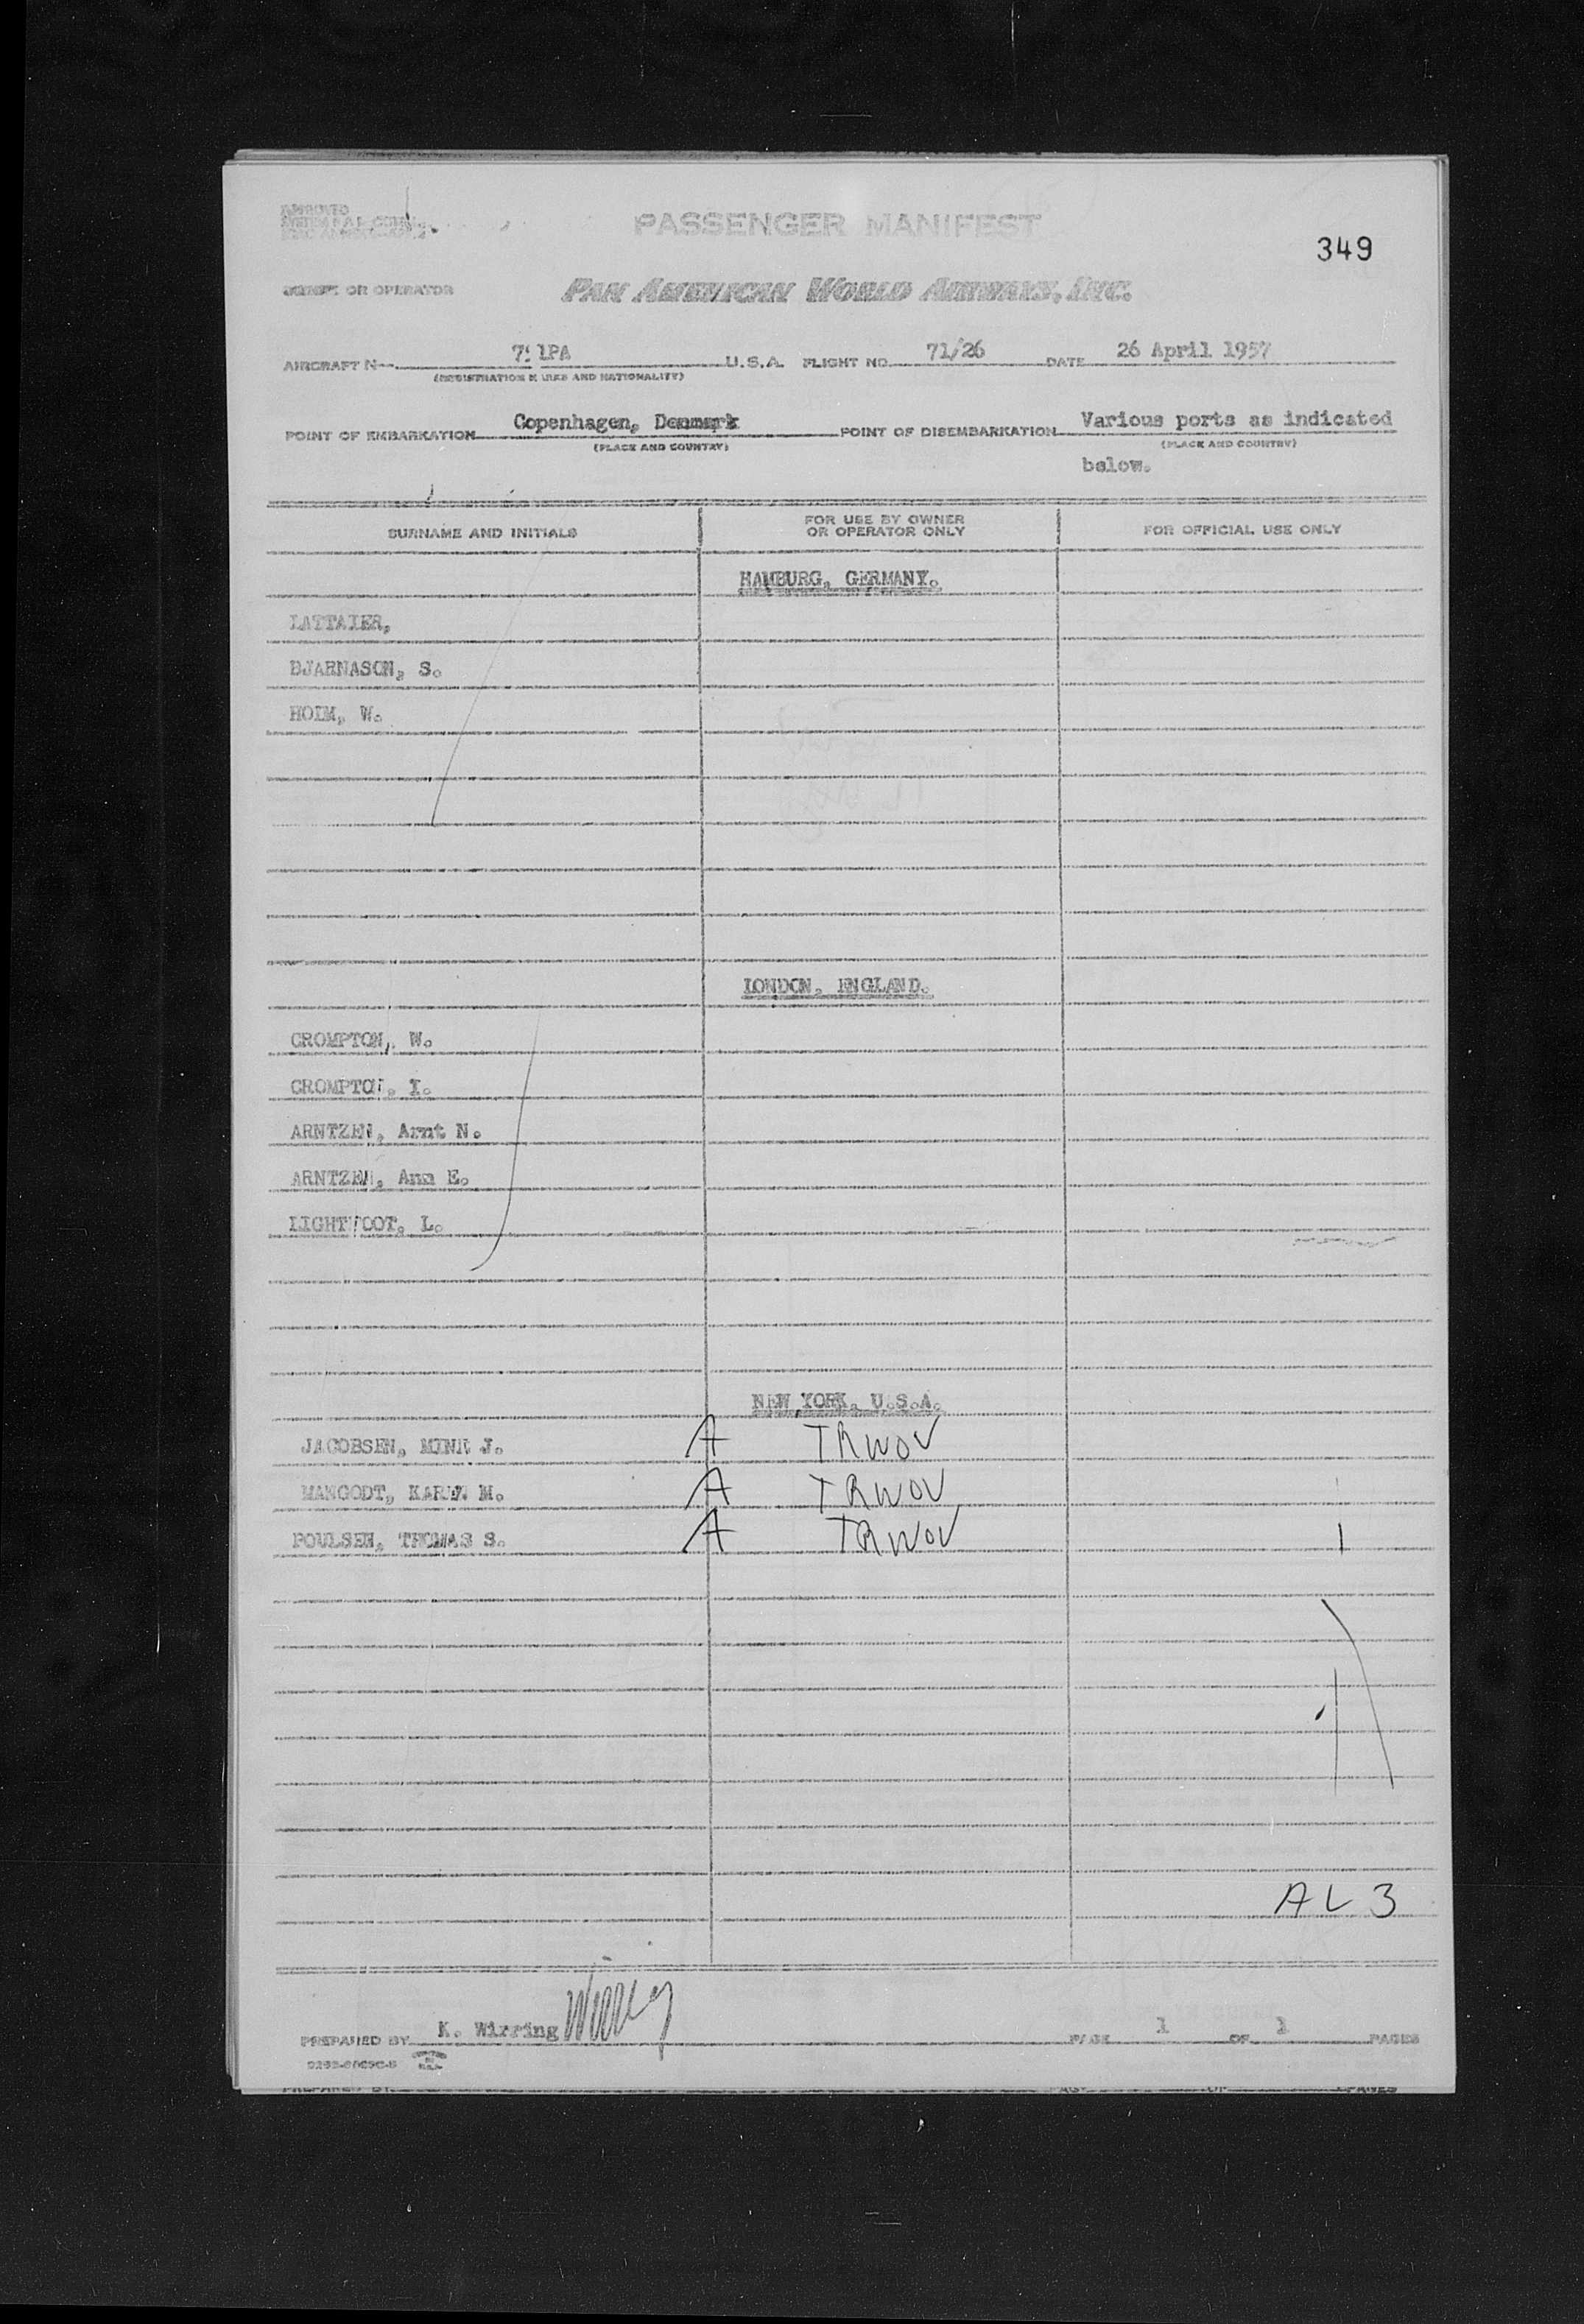 PASSENGER MANIFEST
349
OWNER OR OPERATOR PAN AMERICAN WORLD AIRWAYS, INC.
AIRCRAFT 1PA U.S.A. FLIGHT NO. 71/26 DATE 26 April 1957
(REGISTRATION MARKS AND NATIONALITY)
POINT OF EMBARKATION Copenhagen, Denmark POINT OF DISEMBARKATION Various ports as indicated
(PLACE AND COUNTRY) (PLACE AND COUNTRY)
below.
SURNAME AND INITIALS FOR USE BY OWNER OR OPERATOR ONLY FOR OFFICIAL USE ONLY
HAMBURG, GERMANY.
LATTAIER,
BJARNASON, S.
HOIM, W.
LONDON, ENGLAND.
CROMPTON, W.
CROMPTON, I.
ARNTZEN, Arnt N.
ARNTZEN, Ann E.
LIGHTFOOT, L.
NEW YORK, U.S.A.
JACOBSEN, J. A TRWOV
MANGODT, KAREN M. A TRWOV
POULSEN, THOMAS S. A TRWOV
AL 3
PREPARED BY K. Wirring Wirring PAGE 1 OF 1 PAGES